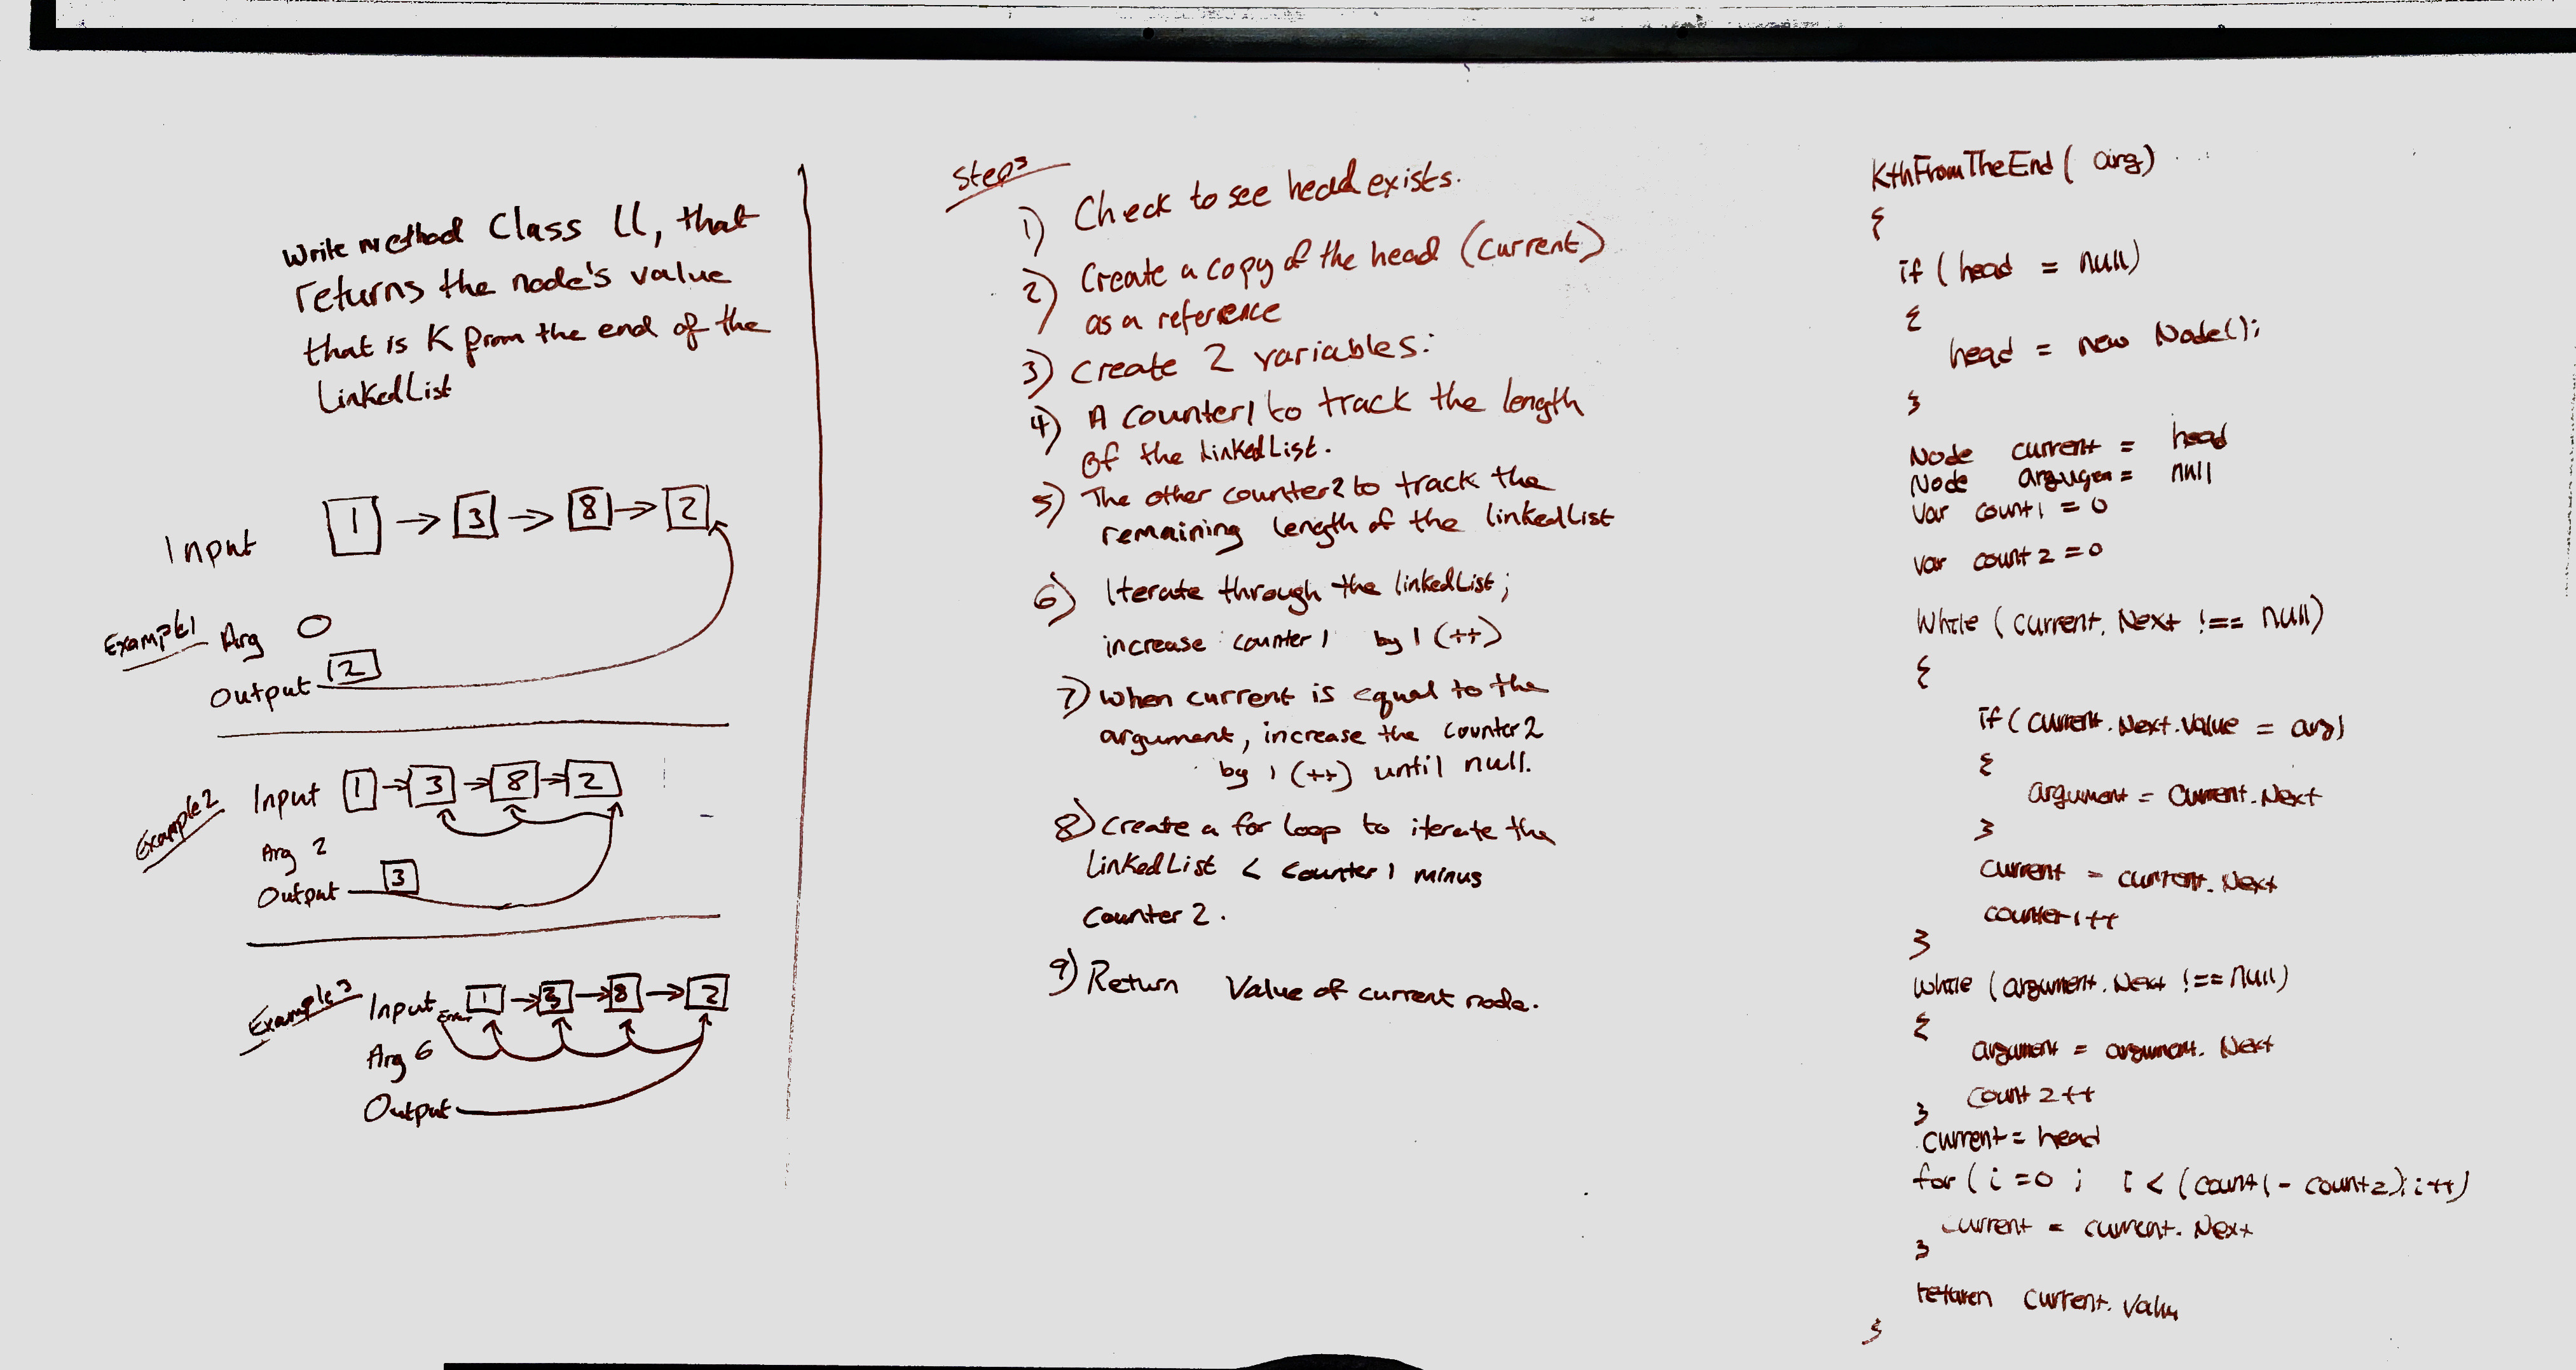 Write method Class LL, that
returns the node's value
that is K from the end of the
LinkedList
Input 1 → 3 → 8 → 2
Example1 Arg 0
Output 2
Example2 Input 1 → 3 → 8 → 2
Arg 2
Output 3
Example3 Input 1 → 3 → 8 → 2
Arg 6
Output
Steps
1) Check to see head exists.
2) Create a copy of the head (current)
as a reference
3) Create 2 variables:
4) A counter1 to track the length
of the LinkedList.
5) The other counter2 to track the
remaining length of the linkedlist
6) Iterate through the linkedList;
increase counter 1 by 1 (++)
7) when current is equal to the
argument, increase the counter2
by 1 (++) until null.
8) create a for loop to iterate the
LinkedList < counter 1 minus
Counter 2.
9) Return Value of current node.
KthFromTheEnd( arg)
{
if ( head = null)
{
head = new Node();
}
Node current = head
Node = null
Var count1 = 0
Var count2 = 0
While (current.Next !== null)
{
if (current.Next.Value = arg)
{
argument = Current.Next
}
current = current.Next
counter1++
}
while (argument.Next !== null)
{
argument = argument.Next
Count2++
}
current = head
for ( i = 0 ; i < (count1 - count2); i++)
current = current.Next
}
return current.Value
}